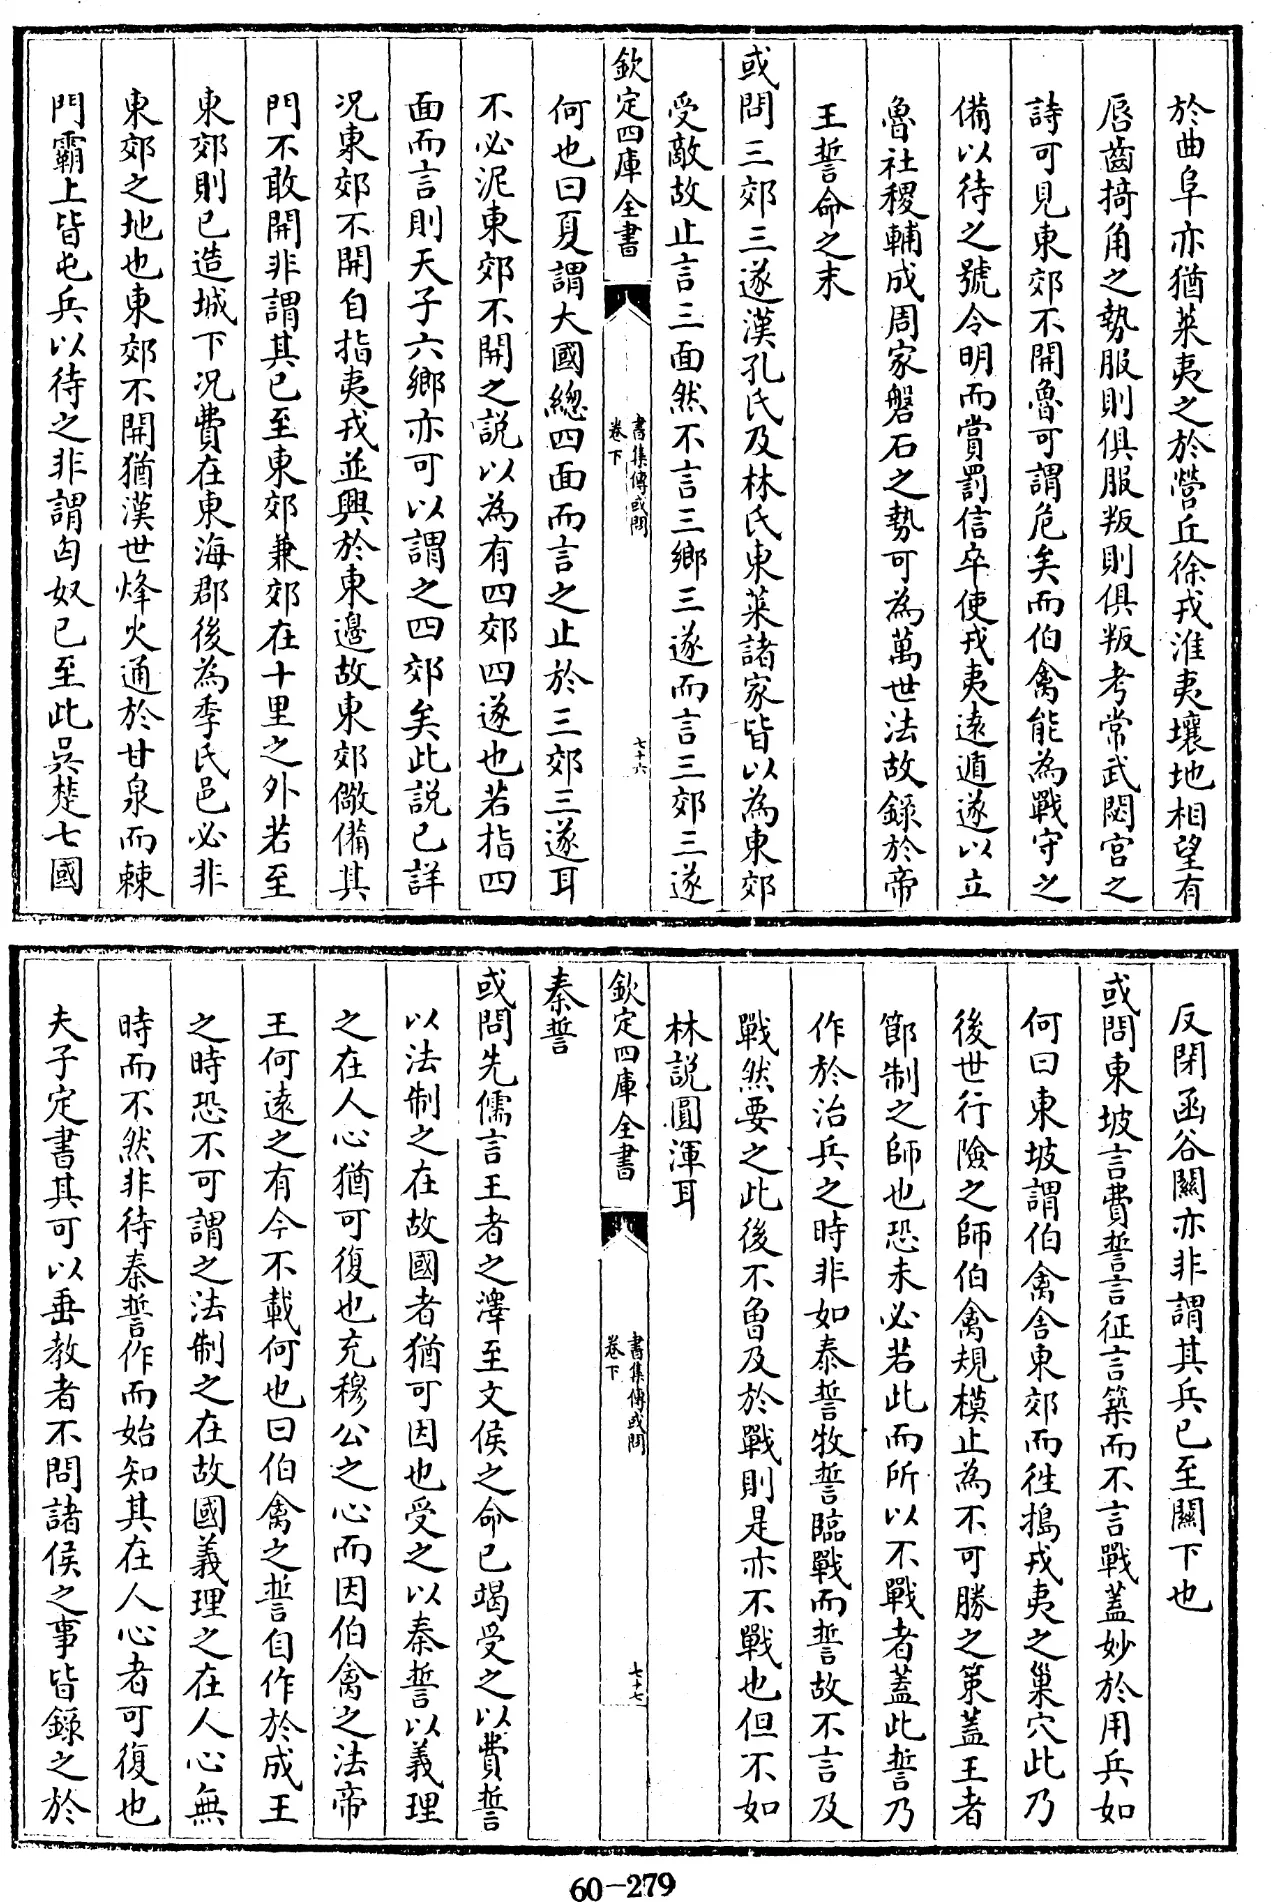 於曲阜亦猶萊夷之於營丘徐戎淮夷壤地相望有
唇齒掎角之勢服則俱服叛則俱叛考常武閟宮之
詩可見東郊不開魯可謂危矣而伯禽能為戰守之
備以待之號令明而賞罰信卒使戎夷遠遁遂以立
魯社稷輔成周家磐石之勢可為萬世法故錄於帝
王誓命之末
或問三郊三遂漢孔氏及林氏東萊諸家皆以為東郊
受敵故止言三面然不言三鄉三遂而言三郊三遂
欽定四庫全書
書集傳或問
卷下
七十六
何也曰夏謂大國總四面而言之止於三郊三遂耳
不必泥東郊不開之說以為有四郊四遂也若指四
面而言則天子六鄉亦可以謂之四郊矣此說已詳
况東郊不開自指夷戎並興於東邊故東郊儆備其
門不敢開非謂其已至東郊兼郊在十里之外若至
東郊則已造城下况費在東海郡後為季氏邑必非
東郊之地也東郊不開猶漢世烽火通於甘泉而棘
門霸上皆屯兵以待之非謂匈奴已至此吳楚七國
反閉函谷關亦非謂其兵已至關下也
或問東坡言費誓言征言築而不言戰蓋妙於用兵如
何曰東坡謂伯禽舍東郊而徃搗戎夷之巢穴此乃
後世行險之師伯禽規模止為不可勝之策蓋王者
節制之師也恐未必若此而所以不戰者蓋此誓乃
作於治兵之時非如泰誓牧誓臨戰而誓故不言及
戰然要之此後不魯及於戰則是亦不戰也但不如
林說圓渾耳
欽定四庫全書
書集傳或問
卷下
七十七
秦誓
或問先儒言王者之澤至文侯之命已竭受之以費誓
以法制之在故國者猶可因也受之以秦誓以義理
之在人心猶可復也充穆公之心而因伯禽之法帝
王何遠之有今不載何也曰伯禽之誓自作於成王
之時恐不可謂之法制之在故國義理之在人心無
時而不然非待秦誓作而始知其在人心者可復也
夫子定書其可以垂教者不問諸侯之事皆錄之於
60-279